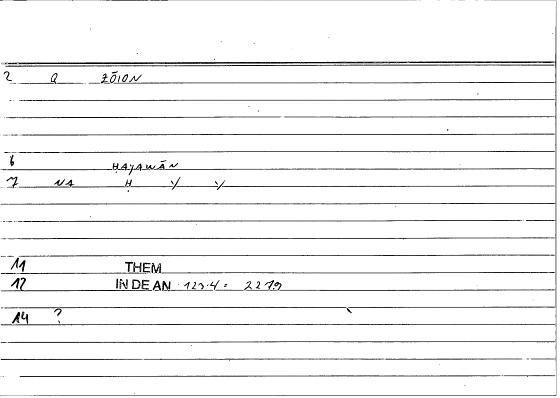 2 Q ZŌION
6 ḤAYAWĀN
7 NA Ḥ Y Y
11 THEM
12 IN DE AN 123.4 = 22 19
14 ?